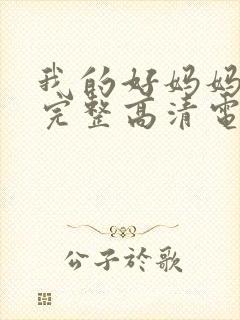 我的好妈妈
完整高清电
公子於歌